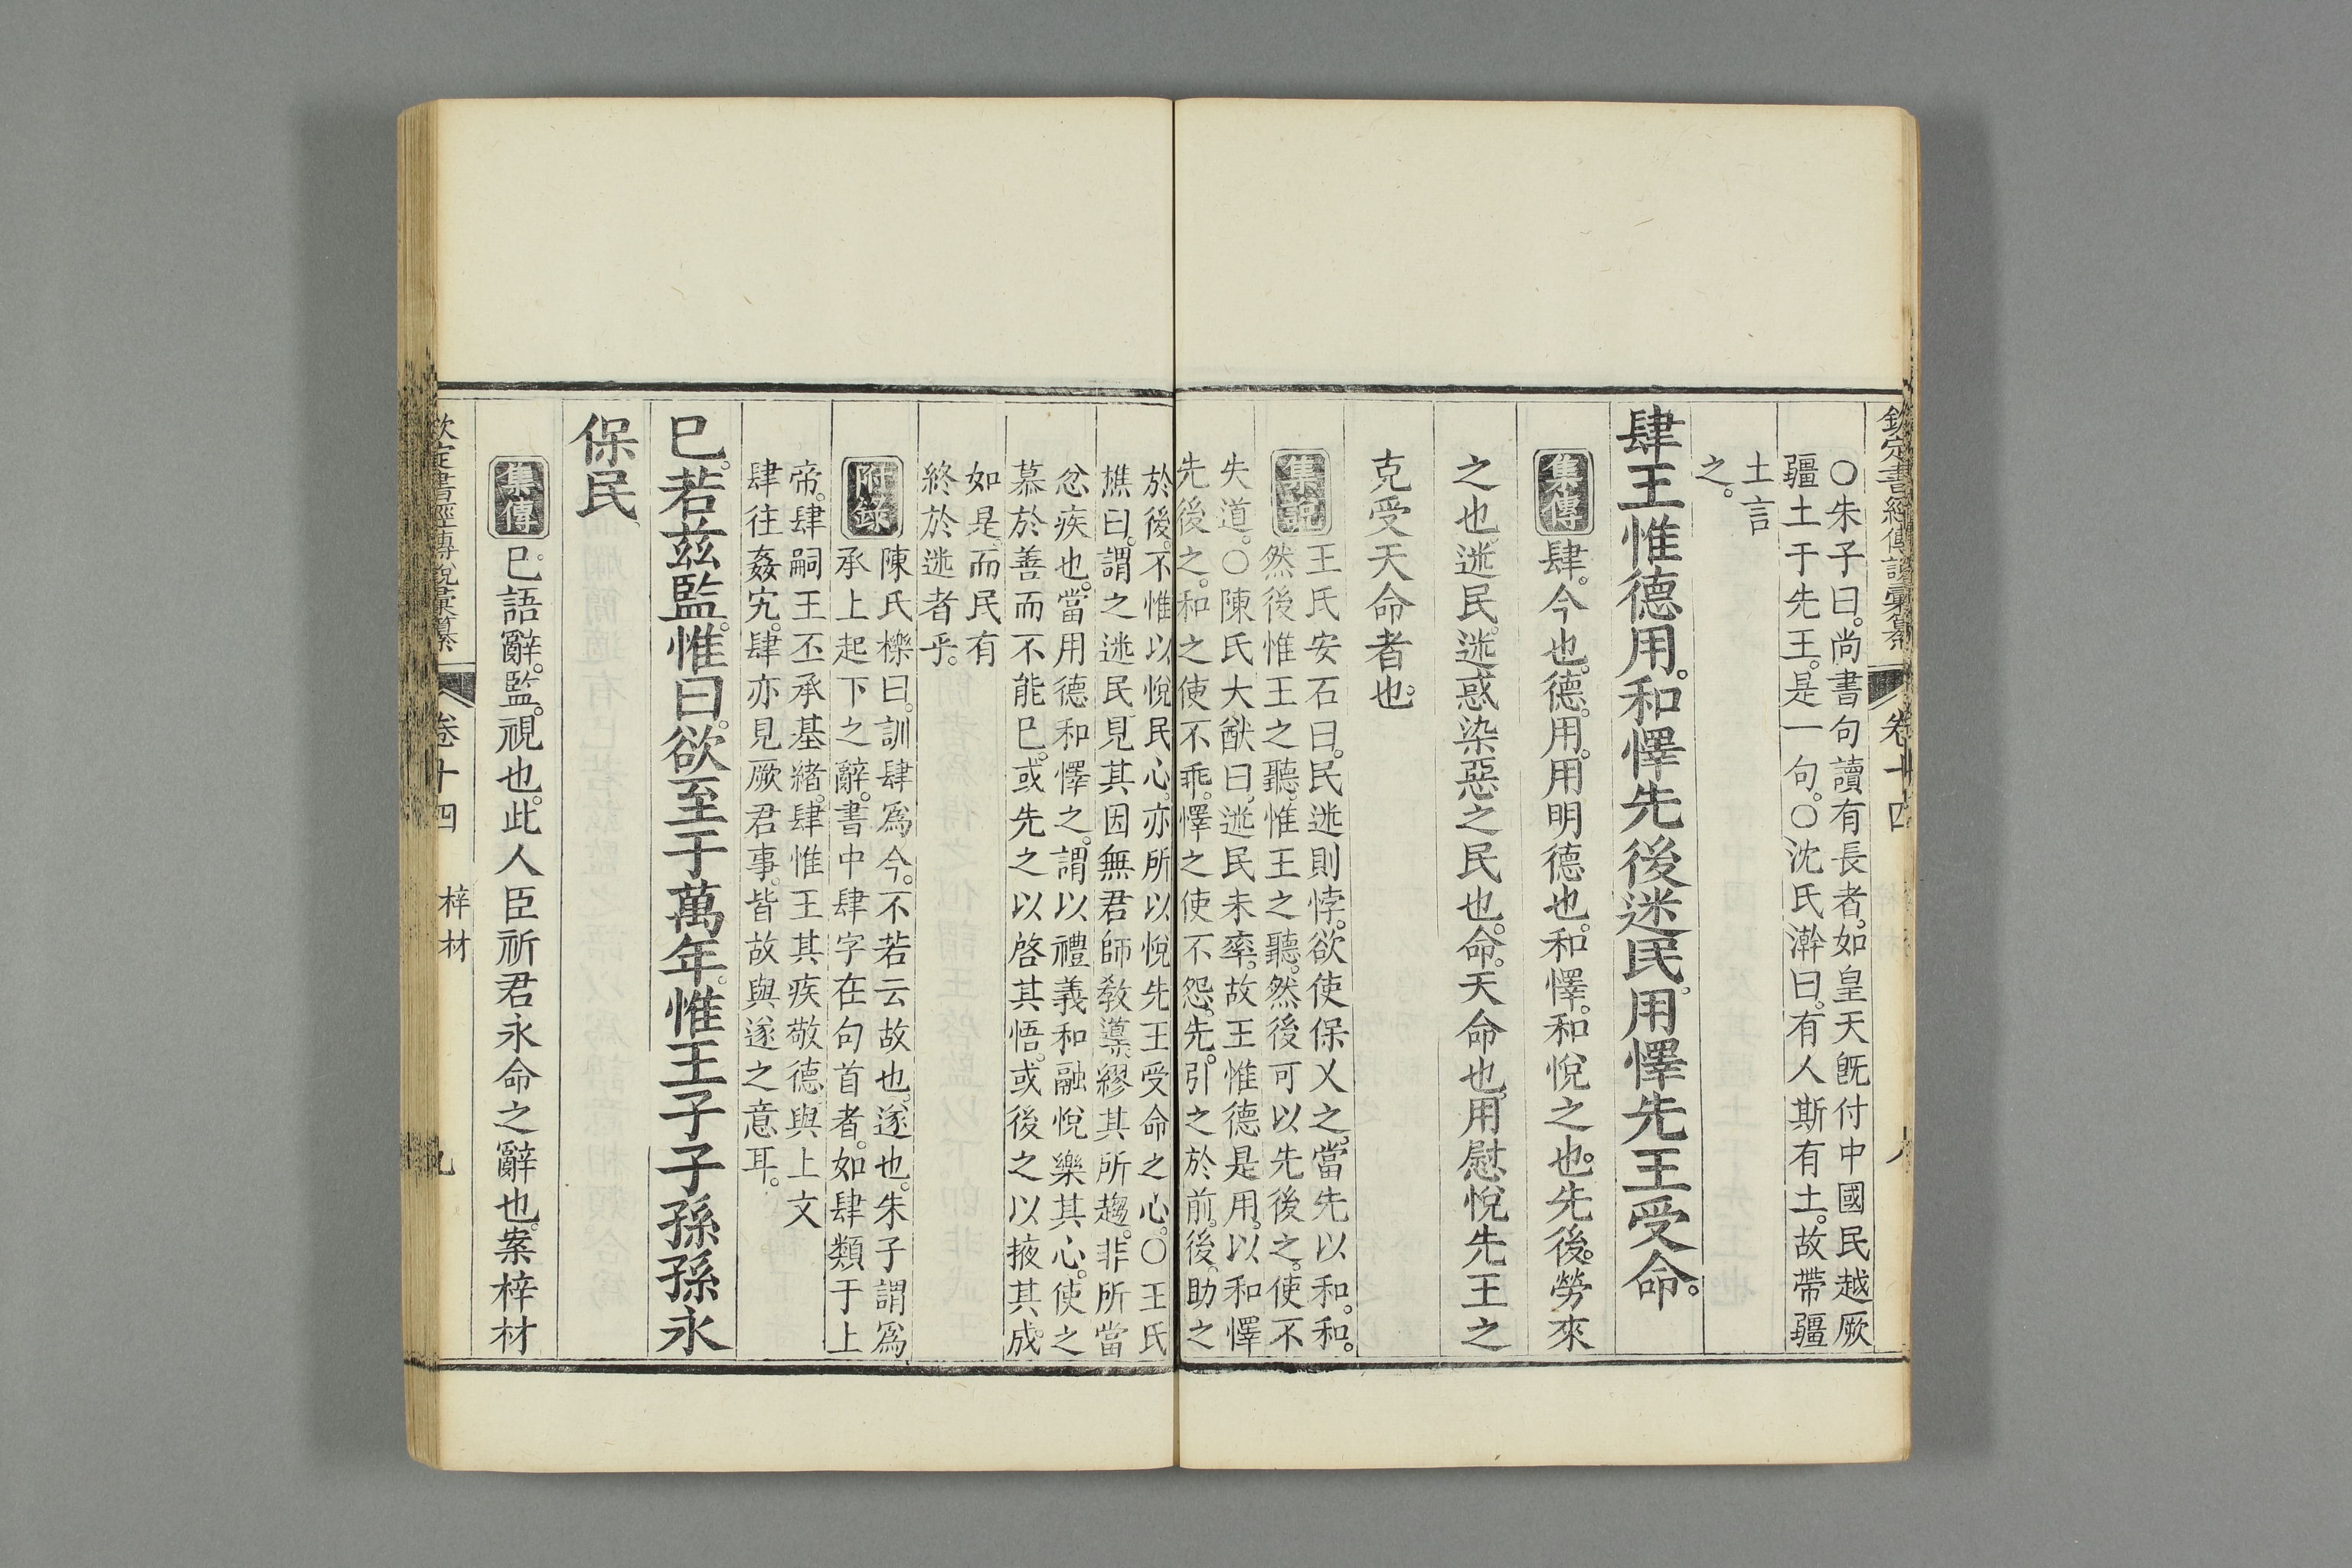 欽定書經傳說彙纂 卷十四
〇朱子曰。尚書句讀有長者。如皇天旣付中國民越厥
疆土于先王。是一句。〇沈氏澣曰。有人斯有土。故帶疆
土言
之。
肆王惟德用。和懌先後迷民。用懌先王受命。
集傳 肆。今也。德。用。用明德也。和懌。和悅之也。先後。勞來
之也。迷民。迷惑染惡之民也。命。天命也。用慰悅先王之
克受天命者也。
集說 王氏安石曰。民迷則悖。欲使保乂之。當先以和。和。
然後惟王之聽。惟王之聽。然後可以先後之。使不
失道。〇陳氏大猷曰。迷民未率。故王惟德是用。以和懌
先後之。和之使不乖。懌之使不怨。先。引之於前。後。助之
於後。不惟以悅民心。亦所以悅先王受命之心。〇王氏
樵曰。謂之迷民見其因無君師敎導。繆其所趨。非所當
忿疾也。當用德和懌之。謂以禮義和融悅樂其心。使之
慕於善而不能已。或先之以啓其悟。或後之以掖其成。
如是。而民有
終於迷者乎。
附錄 陳氏櫟曰。訓肆爲今。不若云故也。遂也。朱子謂爲
承上起下之辭。書中肆字在句首者。如肆類于上
帝。肆嗣王丕承基緒。肆惟王其疾敬德。與上文
肆往姦宄。肆亦見厥君事。皆故與遂之意耳。
已。若茲監。惟曰。欲至于萬年。惟王子子孫孫永
保民
集傳 已。語辭。監。視也。此人臣祈君永命之辭也。案梓材
欽定書經傳說彙纂 卷十四 梓材 九